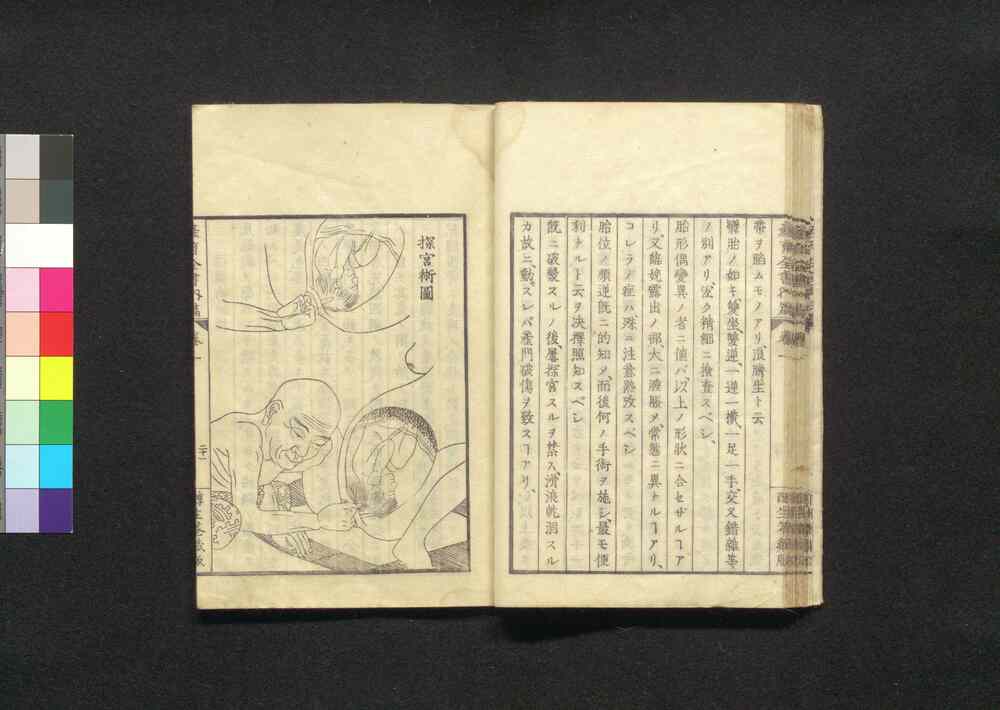 臍ヲ胎ムモノアリ、頂臍生ト云
孿胎ノ如キ、雙坐、雙逆、一逆一横、一足一手、交叉錯雜等
ノ別アリ、宜ク精細ニ撿査スベシ、
胎形偶變異ノ者ニ値バ、以上ノ形狀ニ合セザルヿア
リ、又臨娩露出ノ部、大ニ腫脹メ、常態ニ異トルヿアリ、
コレラノ症ハ殊ニ注意熟攷スベシ
胎位ノ順逆既ニ的知メ、而後何ノ手術ヲ施シ、最モ便
利ナルト云ヲ決擇照知スベシ
既ニ破漿スルノ後、屢探宮スルヲ禁ス、滑澆乾涸スル
カ故ニ、動スレバ産門破傷ヲ致スヿアリ、
探宮術圖
卷一